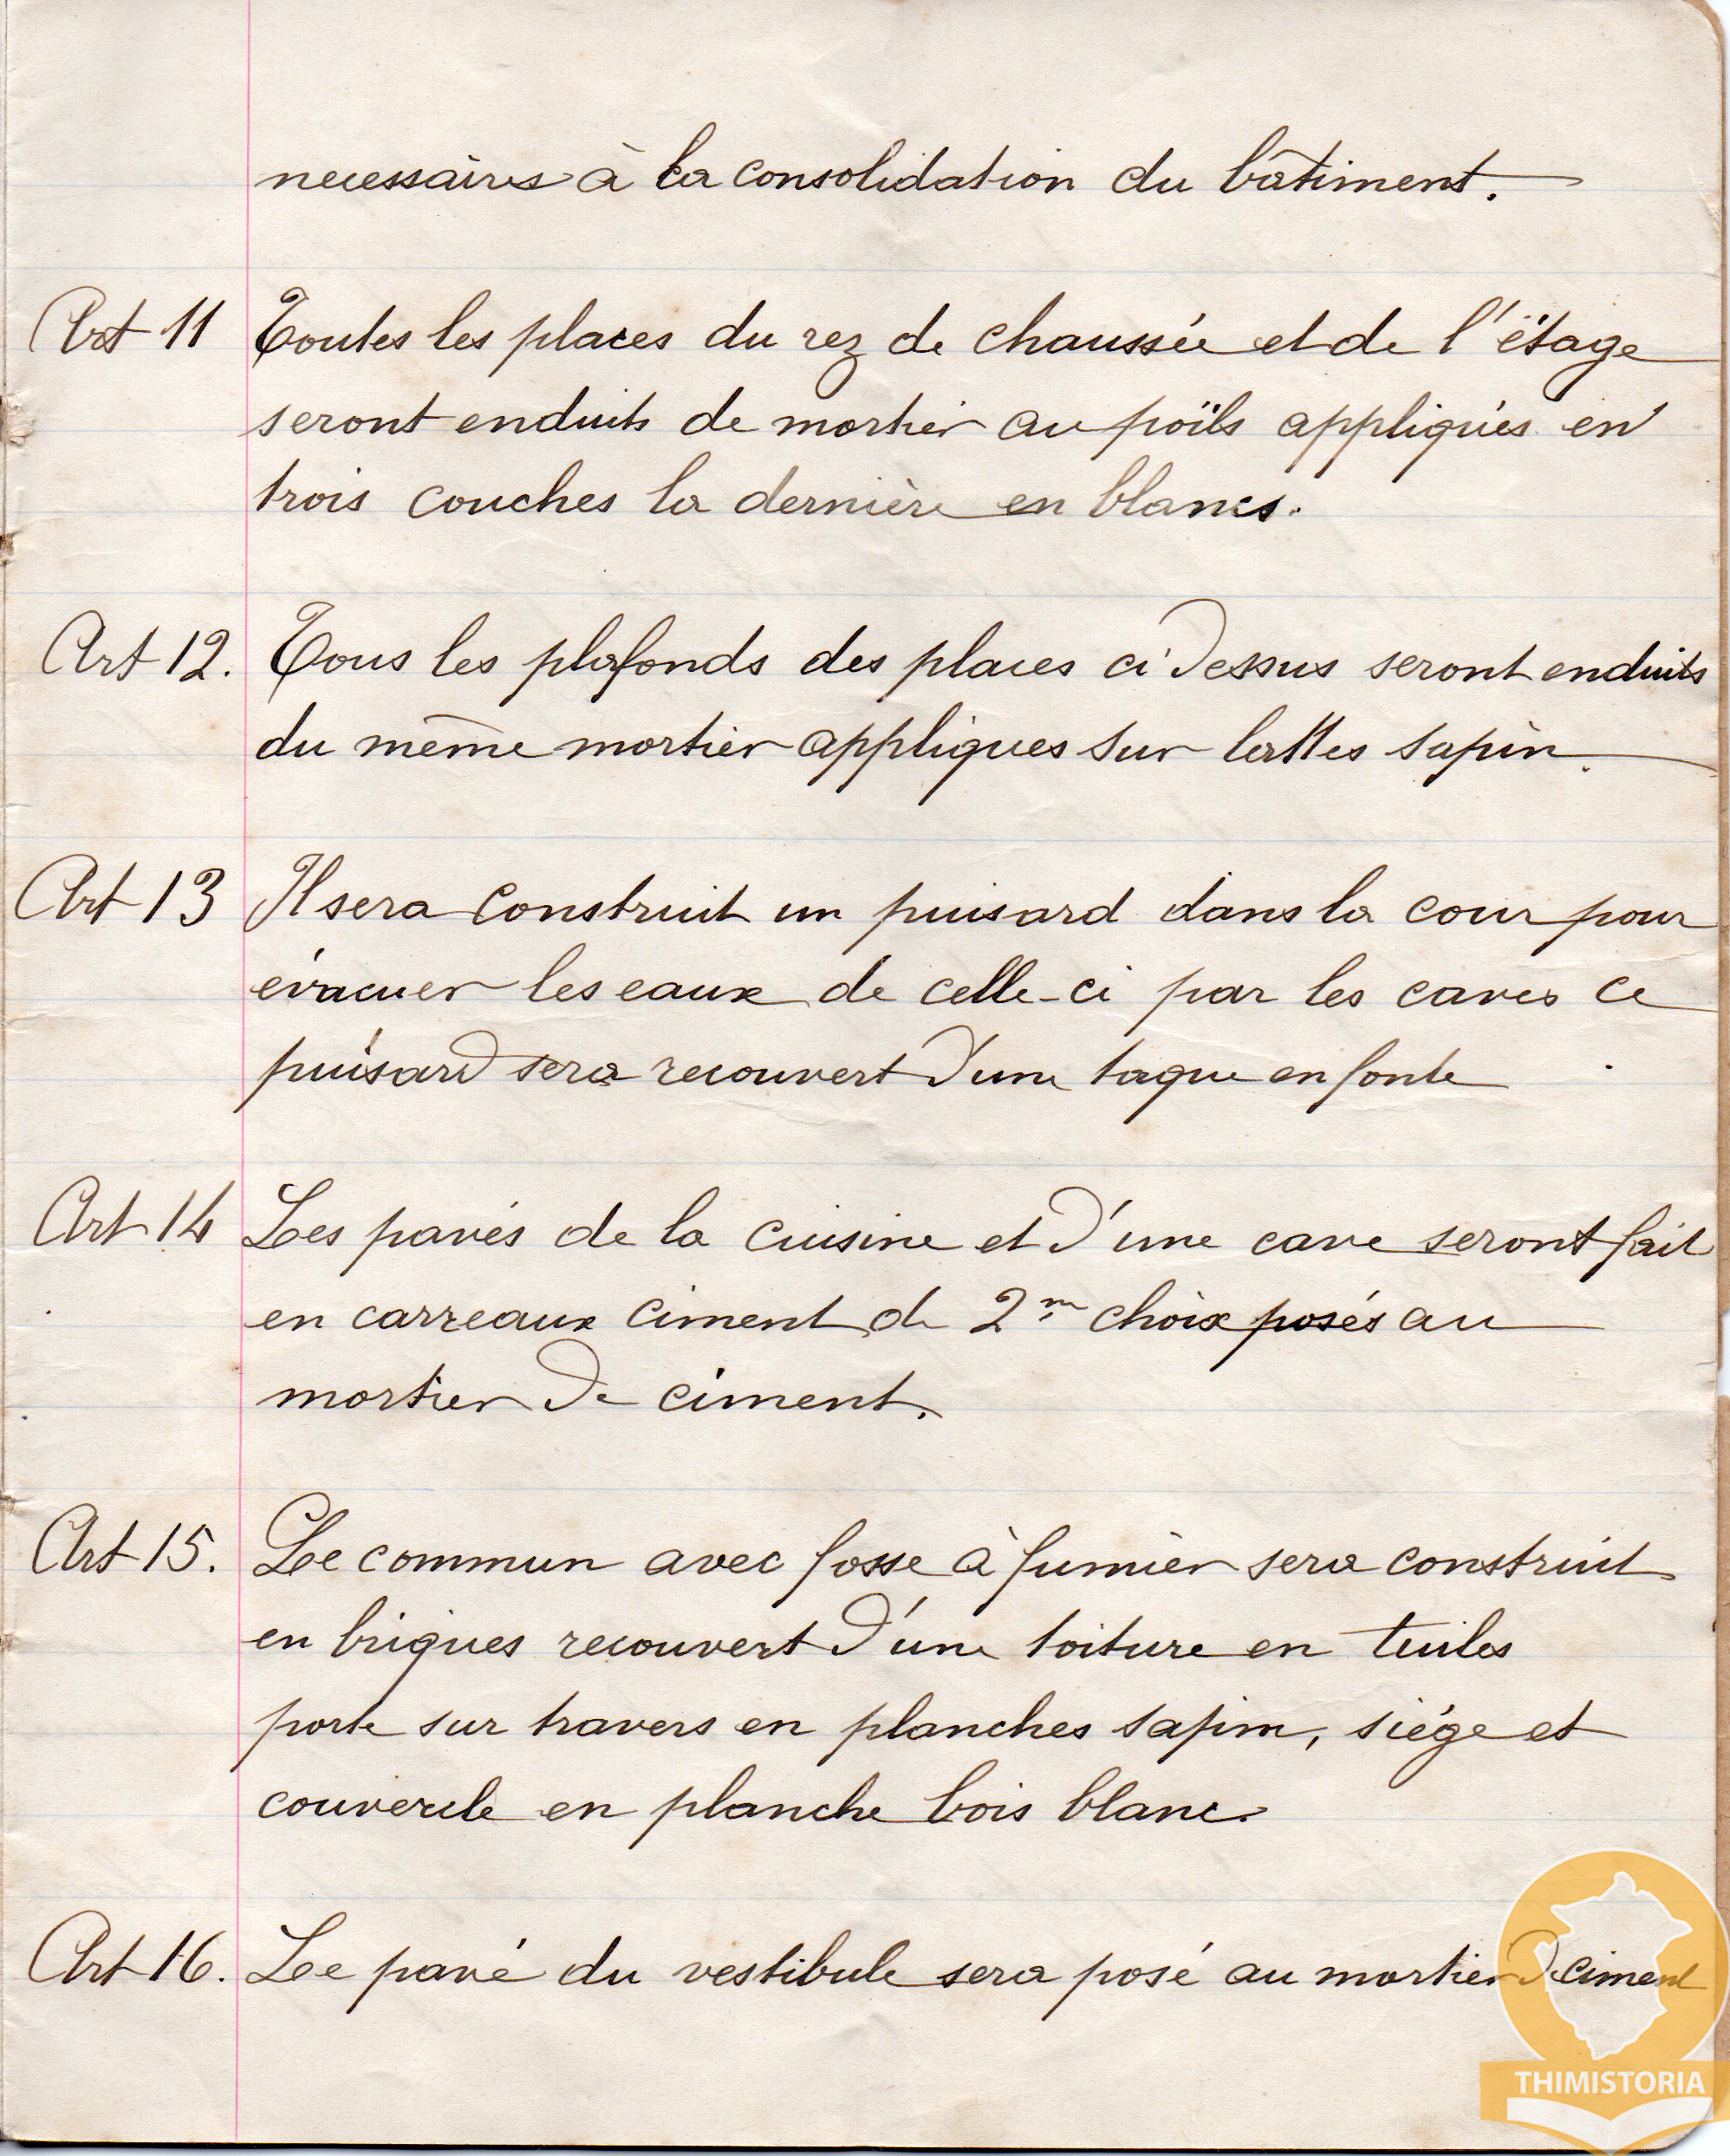 necessaires à la consolidation du bâtiment.
Art 11 Toutes les places du rez de chaussée et de l'étage
seront enduits de mortier au poils appliqués en
trois couches la dernière en blancs.
Art 12. Tous les plafonds des places ci dessus seront enduits
du même mortier appliques sur lattes sapin.
Art 13 Il sera construit un puisard dans la cour pour
évacuer les eaux de celle-ci par les caves ce
puisard sera recouvert d'une taque en fonte
Art 14 Les pavés de la cuisine et d'une cave seront fait
en carreaux ciment de 2m choix posés au
mortier de ciment.
Art 15. Le commun avec fosse à fumier sera construit
en briques recouvert d'une toiture en tuiles
porte sur travers en planches sapin, siège et
couvercle en planche bois blanc.
Art 16. Le pavé du vestibule sera posé au mortier de ciment
THIMISTORIA